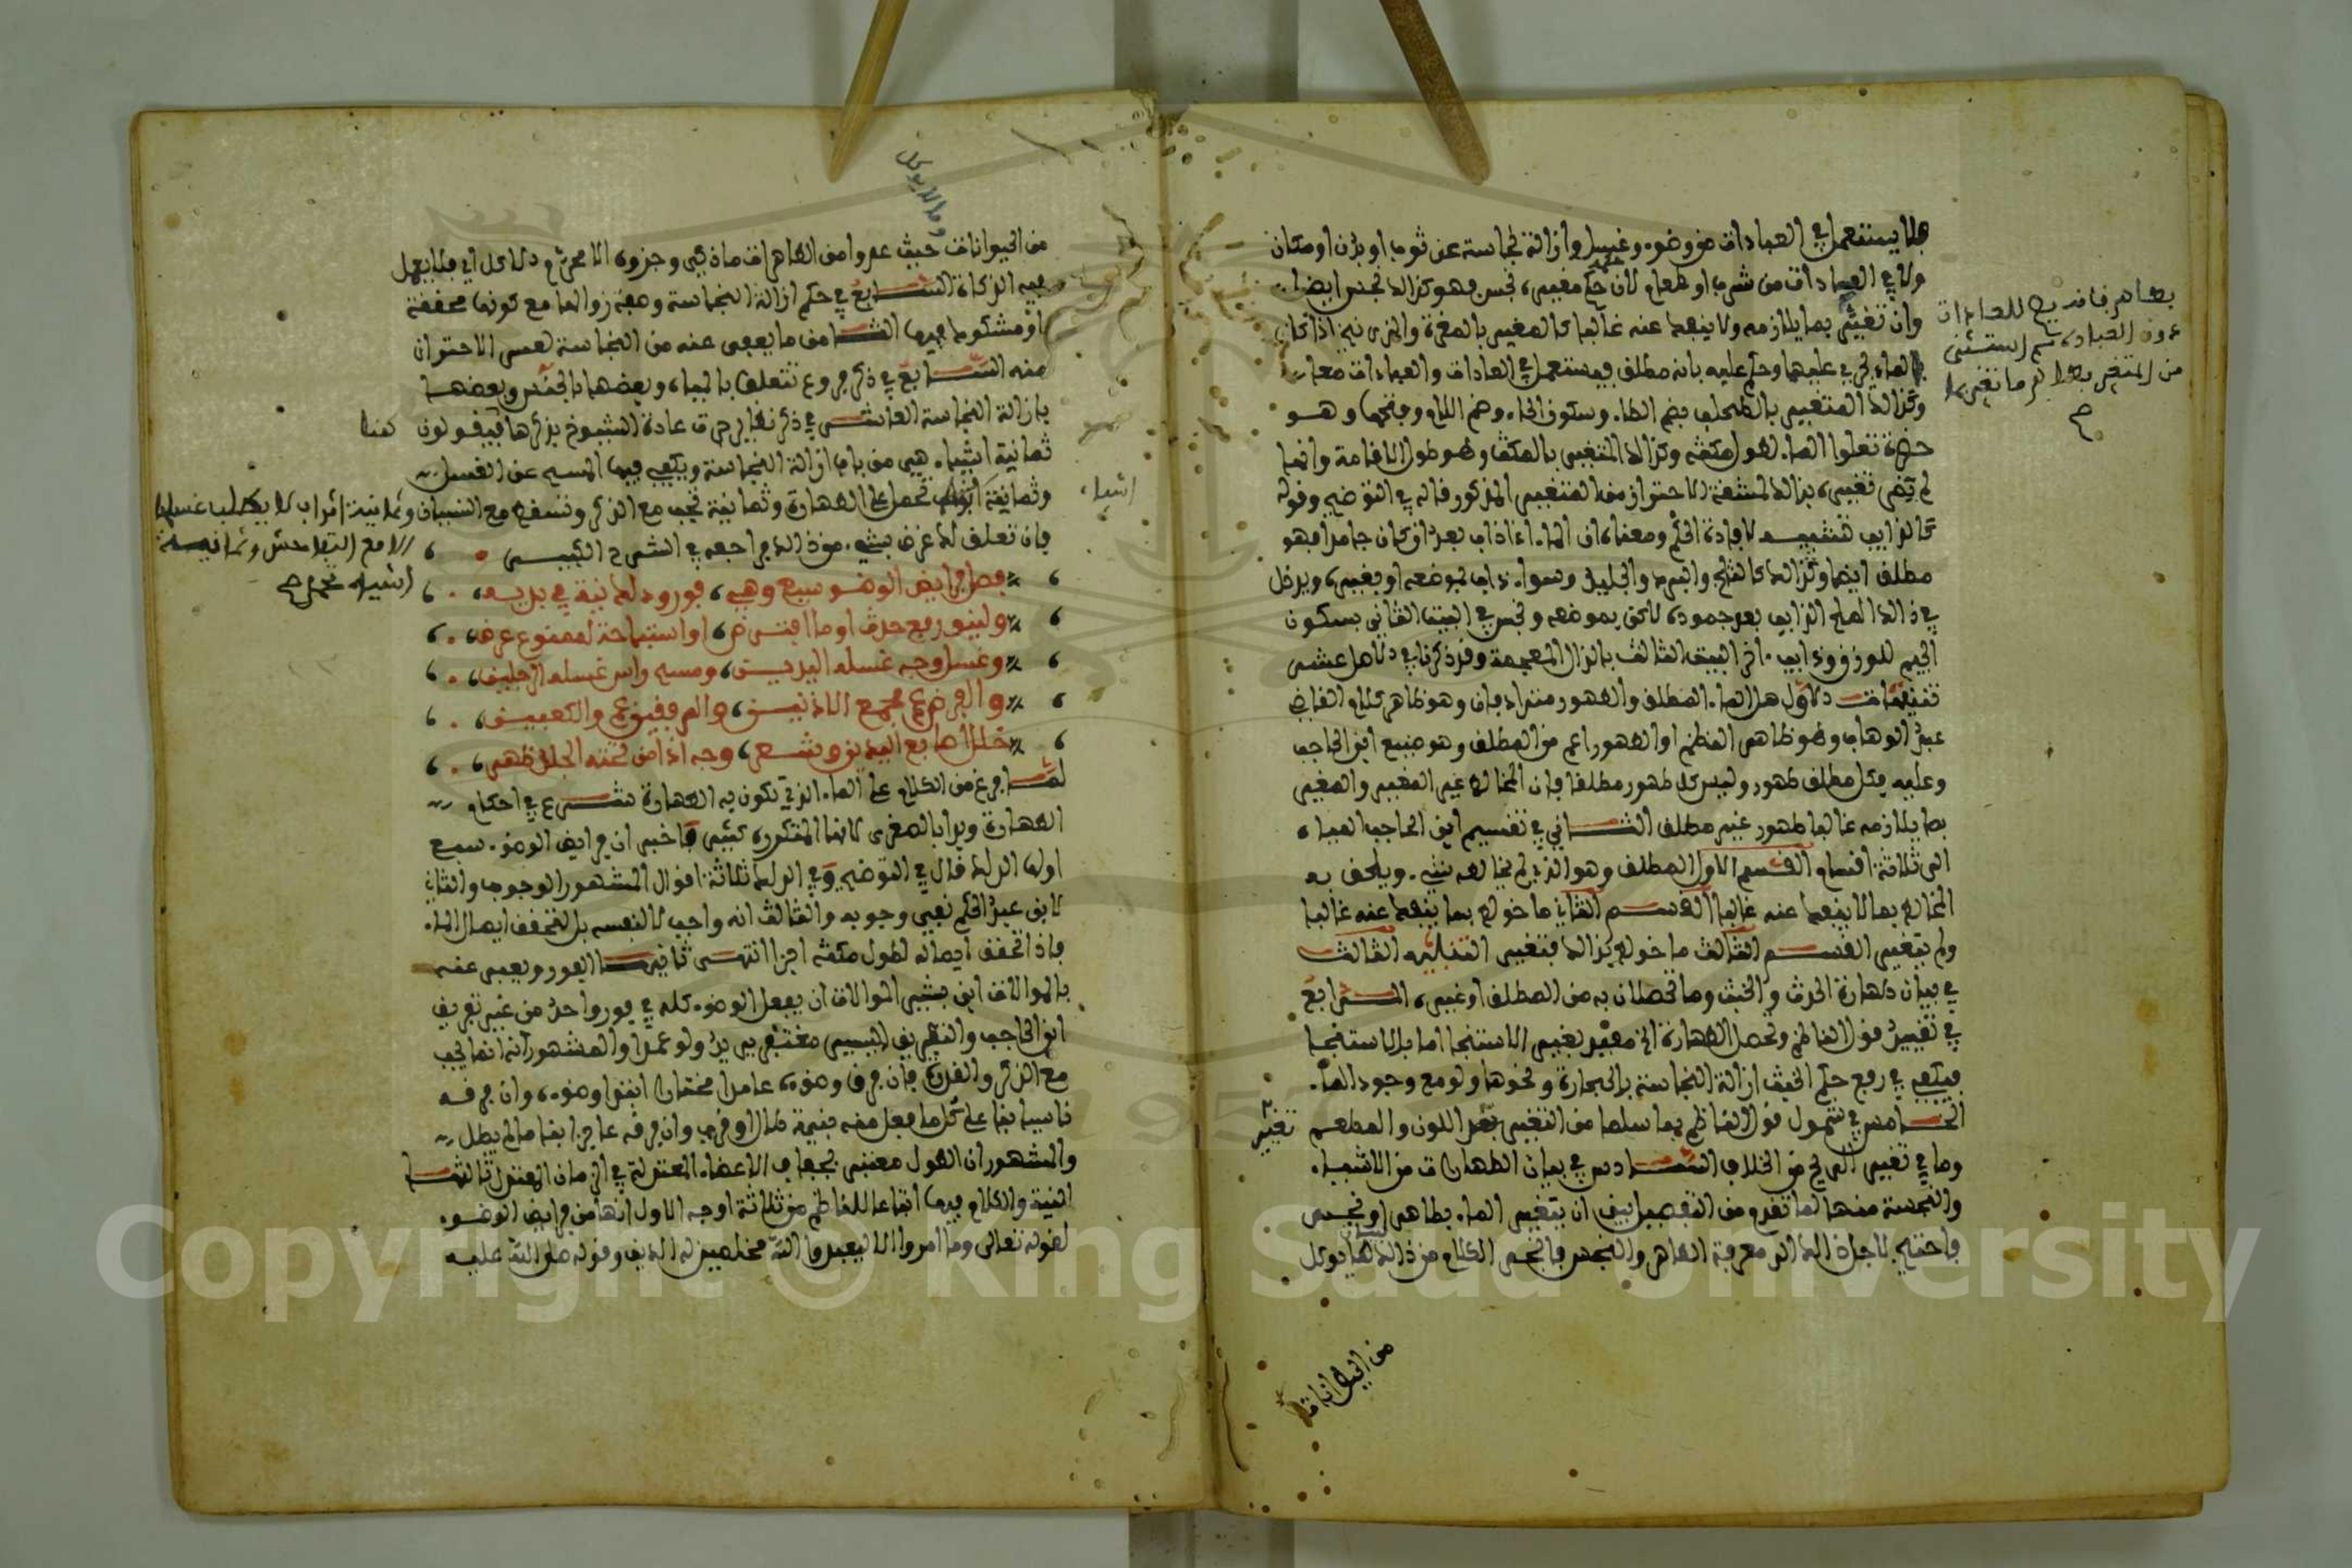 فلا يستعمل في العبادات من وضوء وغسل وازالة نجاسة عن ثوب او بدن او مكان
ولا في العادات من شرب او طعام لان حكم مغيره نجس فهو كذالك نجس ايضا
وان تغير بما يلازمه ولا ينفك عنه غالبا كالمغير بالمغرة والزرنيخ اذا كان
الماء يجري عليهما وحكم عليه بانه مطلق فيستعمل في العادات والعبادات معا
وكذالك المتغير بالطحلب بضم الطاء وسكون الحاء وضم اللام وفتحها وهو
خضرة تعلوا الماء لطول مكثه وكذالك المتغير بالمكث وهو طول الاقامة وانما
لم يضر تغيره بذالك لمشقة الاحتراز من المتغير المذكور قاله في التوضيح وقوله
كالذايب تشبيه لافادة الحكم ومعناه ان الماء اذا ذاب بعد ان كان جامدا فهو
مطلق ايضا وكذالك كالثلج والبرد والجليد وسواء ذاب بموضعه او بغيره ويدخل
في ذالك الملح الذايب بعد جموده لاكن بموضعه ونجس في البيت الثاني بسكون
الجيم للوزن وذايب اخر البيت الثالث بالذال المعجمة وقد ذكرنا في الاصل عشر
تنبيهات الاول هل الماء المطلق والطهور مترادفان وهو ظاهر كلام القاضي
عبد الوهاب وهو ظاهر النظم او الطهور اعم من المطلق وهو صنيع ابن الحاجب
وعليه فكل مطلق طهور وليس كل طهور مطلقا فان المخالط غير المغير والمغير
بما يلازمه غالبا طهور غير مطلق الثاني في تقسيم ابن الحاجب المياه
الى ثلاثة اقسام القسم الاول المطلق وهو الذي لم يخالطه شيء ويلحق به
المخالط بما لا ينفك عنه غالبا القسم الثاني ما خولط بما ينفك عنه غالبا
ولم يتغير القسم الثالث ما خولط بذالك فتغير التنبيه الثالث
في بيان طهارة الحدث والخبث وما تحصلان به من المطلق او غيره الرابع
في تقييد قول الناظم وتحصل الطهارة الخ مقيد بغير الاستنجا اما بالاستنجا
فيكفي في رفع حكم الخبث ازالة النجاسة بالحجارة ونحوها ولو مع وجود الماء
الخامس في شمول قول الناظم بما سلما من التغير تغير اللون والطعم
وما في تغير الريح من الخلاف السادس في بيان الطاهرات من الاشياء
والنجسة منها لما تقدم من التفصيل بين ان يتغير الماء بطاهر او نجس
فاحتيج لاجل ذالك الى معرفة الطاهر والنجس فانجر الكلام من ذالك لما يوكل
من الحيوانات
بطاهر فانه يصلح للعادات
دون العبادة ثم استثنى
من المتغير بطاهر ما تغير بما
تغير
وما لا يوكل
من الحيوانات حيث عدوا من الطاهرات ما ذكي وجزوه الا محرم الاكل اي فلا يعمل
فيه الذكاة السابع في حكم ازالة النجاسة وصفة زوالها مع كونها محققة
او مشكوك فيها الثامن ما يعفى عنه من النجاسة لعسر الاحتراز
منه التاسع في ذكر فروع تتعلق بالمياه وبعضها بالنجس وبعضها
بازالة النجاسة العاشر في ذكر نظاير جرت عادة الشيوخ بذكرها فيقولون
ثمانية اشياء هي من باب ازالة النجاسة ويكفي فيها المسح عن الغسل
وثمانية تحمل على الطهارة وثمانية تجب مع الذكر وتسقط مع النسيان
فان تعلق لك غرض بشيء من ذالك فراجعه في الشرح الكبير
فصل فرايض الوضو سبع وهي فور ودلك نية في بديه
ولينو رفع حدث او ما افترض او استباحة لممنوع عرض
وغسل وجه غسله اليدين ومسح راس غسله الرجلين
والفرض عم مجمع الاذنين والمرفقين عم والكعبين
خلل اصابع اليدين وشعر وجه اذا من تحته الجلد ظهر
لما فرغ من الكلام على الماء الذي تكون به الطهارة شرع في احكام
الطهارة وبدا بالصغرى لانها المتكررة كثيرا فاخبر ان فرايض الوضوء سبع
اولها الدلك قال في التوضيح وفي الدلك ثلاثة اقوال المشهور الوجوب والثاني
لابن عبد الحكم نفي وجوبه والثالث انه واجب لا لنفسه بل لتحقق ايصال الماء
فاذا تحقق ايصاله لطول مكثه اجزا انتهى ثانيها الفور ويعبر عنه
بالموالاة ابن بشير الموالاة ان يفعل الوضوء كله في فور واحد من غير تفريق
ابن الحاجب والتفريق اليسير مغتفر ولو عمدا والمشهور انها انما تجب
مع الذكر والقدرة فان فرق وضوءه عامدا مختارا ابتدا وضوءه وان فرقه
ناسيا بنا على كل ما فعل منه بنية طال او قرب وان فرقه عاجزا بنا ما لم يطل
والمشهور ان الطول معتبر بجفاف الاعضاء المعتدلة في الزمان المعتدل ثالثها
النية والكلام فيها اتباعا للناظم من ثلاثة اوجه الاول انها من فرايض الوضوء
لقوله تعالى وما امروا الا ليعبدوا الله مخلصين له الدين وقوله صلى الله عليه
اشياء
وثمانية اثواب لا يطلب غسلها
الا مع التفاحش وثمانية
اشياء تحمل